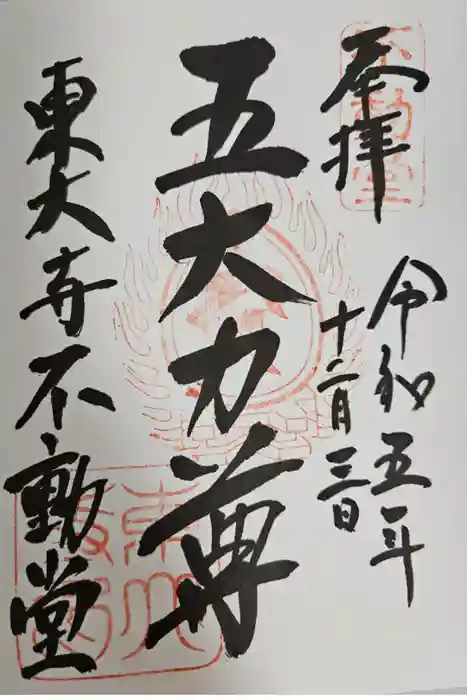 奉拝
令和五年
十二月三日
五大力尊
東大寺不動堂
不動堂